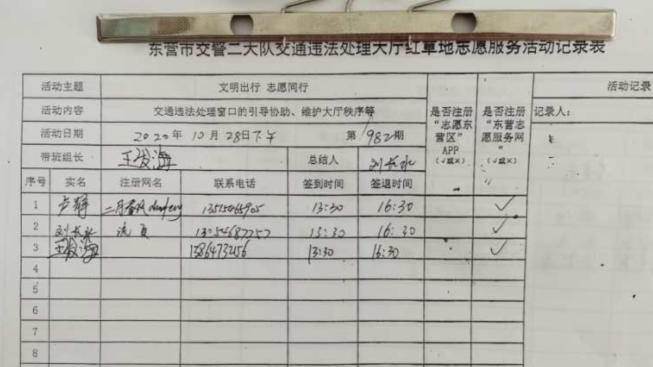 东营市交警二大队交通违法处理大厅红草地志愿服务活动记录表
活动主题 文明出行 志愿同行
活动内容 交通违法处理窗口的引导协助、维护大厅秩序等
活动日期 2020年 10月 28日下午 第 982期
带班组长 总结人 刘长水
是否注册“志愿东营区”APP(√或×)
是否注册“东营志愿服务网”(√或×)
活动记录
记录人:
序号 实名 注册网名 联系电话 签到时间 签退时间
1 13:30 16:30 √
2 刘长水 13:30 16:30 √
3 13864732156 13:30 16:30 √
4
5
6
7
8